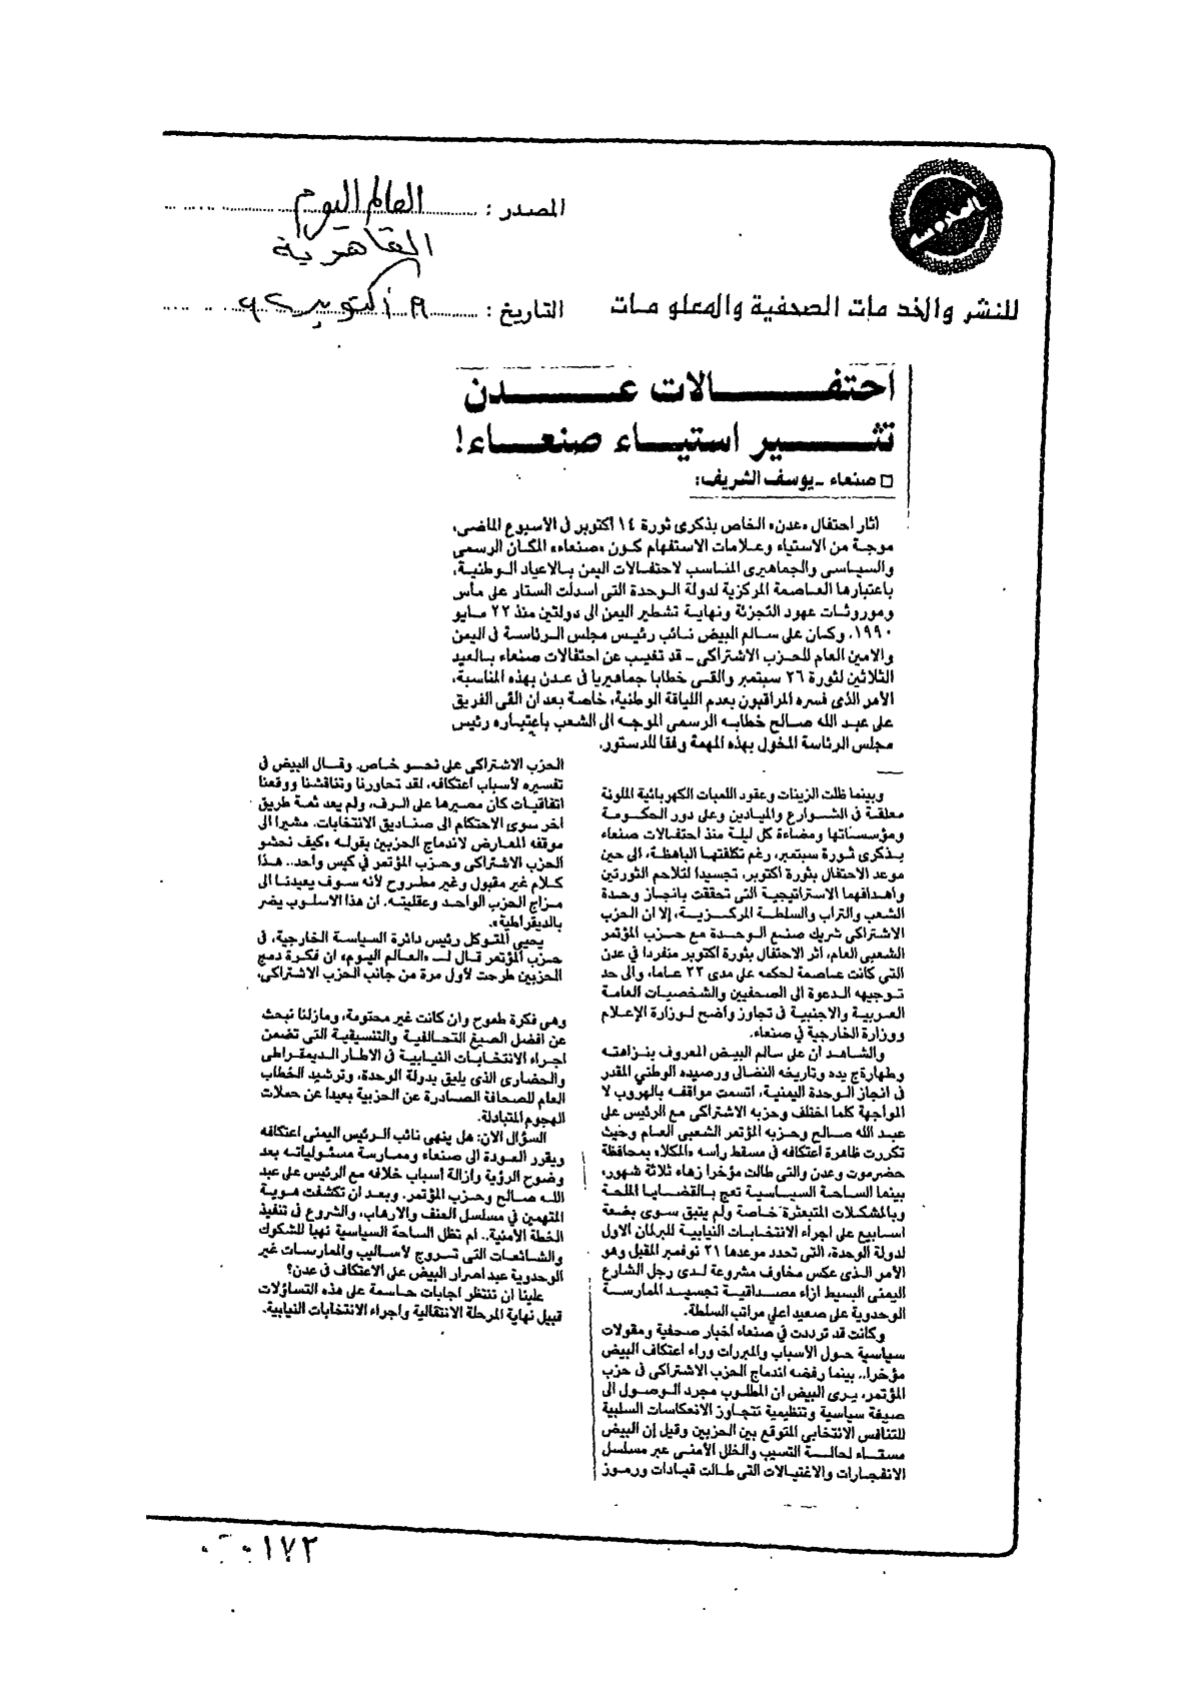 المصدر : العالم اليوم
القاهرية
للنشر والخدمات الصحفية والمعلومات
التاريخ : أكتوبر
احتفالات عدن
تثير استياء صنعاء!
□ صنعاء - يوسف الشريف:
أثار احتفال «عدن» الخاص بذكرى ثورة ١٤ أكتوبر فى الأسبوع الماضى،
موجة من الاستياء وعلامات الاستفهام كون «صنعاء» المكان الرسمى
والسياسى والجماهيرى المناسب لاحتفالات اليمن بالاعياد الوطنية،
باعتبارها العاصمة المركزية لدولة الوحدة التى اسدلت الستار على مأس
وموروثات عهود التجزئة ونهاية تشطير اليمن الى دولتين منذ ٢٢ مايو
١٩٩٠، وكان على سالم البيض نائب رئيس مجلس الرئاسة فى اليمن
والامين العام للحزب الاشتراكى - قد تغيب عن احتفالات صنعاء بالعيد
الثلاثين لثورة ٢٦ سبتمبر والقى خطابا جماهيريا فى عدن بهذه المناسبة،
الأمر الذى فسره المراقبون بعدم اللياقة الوطنية، خاصة بعد ان القى الفريق
على عبد الله صالح خطابه الرسمى الموجه الى الشعب باعتباره رئيس
مجلس الرئاسة المخول بهذه المهمة وفقا للدستور.
وبينما ظلت الزينات وعقود اللمبات الكهربائية الملونة
معلقة فى الشوارع والميادين وعلى دور الحكومة
ومؤسساتها ومضاءة كل ليلة منذ احتفالات صنعاء
بذكرى ثورة سبتمبر، رغم تكلفتها الباهظة، الى حين
موعد الاحتفال بثورة أكتوبر، تجسيدا لتلاحم الثورتين
وأهدافهما الاستراتيجية التى تحققت بانجاز وحدة
الشعب والتراب والسلطة المركزية، إلا ان الحزب
الاشتراكى شريك صنع الوحدة مع حزب المؤتمر
الشعبى العام، أثر الاحتفال بثورة أكتوبر منفردا فى عدن
التى كانت عاصمة لحكمه على مدى ٢٣ عاما، والى حد
توجيهه الدعوة الى الصحفيين والشخصيات العامة
العربية والاجنبية فى تجاوز واضح لوزارة الإعلام
ووزارة الخارجية فى صنعاء.
والشاهد ان على سالم البيض المعروف بنزاهته
وطهارة يده وتاريخه النضالى ورصيده الوطنى المقدر
فى انجاز الوحدة اليمنية، اتسمت مواقفه بالهروب لا
المواجهة كلما اختلف وحزبه الاشتراكى مع الرئيس على
عبد الله صالح وحزبه المؤتمر الشعبى العام وحيث
تكررت ظاهرة اعتكافه فى مسقط راسه «المكلا» بمحافظة
حضرموت وعدن والتى طالت مؤخرا زهاء ثلاثة شهور،
بينما الساحة السياسية تعج بالقضايا الملحة
وبالمشكلات المتبعثرة خاصة ولم يتبق سوى بضعة
اسابيع على اجراء الانتخابات النيابية للبرلمان الاول
لدولة الوحدة، التى تحدد موعدها ٢١ نوفمبر المقبل وهو
الأمر الذى عكس مخاوف مشروعة لدى رجل الشارع
اليمنى البسيط ازاء مصداقية تجسيد الممارسة
الوحدوية على صعيد اعلى مراتب السلطة.
وكانت قد ترددت فى صنعاء أخبار صحفية ومقولات
سياسية حول الأسباب والمبررات وراء اعتكاف البيض
مؤخرا.. بينما رفضه اندماج الحزب الاشتراكى فى حزب
المؤتمر، يرى البيض ان المطلوب مجرد الوصول الى
صيغة سياسية وتنظيمية تتجاوز الانعكاسات السلبية
للتنافس الانتخابى المتوقع بين الحزبين وقيل إن البيض
مستاء لحالة التسيب والخلل الأمنى عبر مسلسل
الانفجارات والاغتيالات التى طالت قيادات ورموز
الحزب الاشتراكى على نحو خاص. وقال البيض فى
تفسيره لأسباب اعتكافه، لقد تحاورنا وتناقشنا ووقعنا
اتفاقيات كان مصيرها على الرف، ولم يعد ثمة طريق
اخر سوى الاحتكام الى صناديق الانتخابات. مشيرا الى
موقفه المعارض لاندماج الحزبين بقوله «كيف نحشو
الحزب الاشتراكى وحزب المؤتمر فى كيس واحد.. هذا
كلام غير مقبول وغير مطروح لأنه سوف يعيدنا الى
مزاج الحزب الواحد وعقليته. ان هذا الاسلوب يضر
بالديقراطية».
يحيى المتوكل رئيس دائرة السياسة الخارجية، فى
حزب المؤتمر قال لـ «العالم اليوم» ان فكرة دمج
الحزبين طرحت لأول مرة من جانب الحزب الاشتراكى،
وهى فكرة طموح وان كانت غير محتومة، ومازلنا نبحث
عن افضل الصيغ التحالفية والتنسيقية التى تضمن
اجراء الانتخابات النيابية فى الاطار الديمقراطى
والحضارى الذى يليق بدولة الوحدة، وترشيد الخطاب
العام للصحافة الصادرة عن الحزبية بعيدا عن حملات
الهجوم المتبادلة.
السؤال الان: هل ينهى نائب الرئيس اليمنى اعتكافه
ويقرر العودة الى صنعاء وممارسة مسئولياته بعد
وضوح الرؤية وازالة أسباب خلافه مع الرئيس على عبد
الله صالح وحزب المؤتمر. وبعد ان تكشفت هوية
المتهمين فى مسلسل العنف والارهاب، والشروع فى تنفيذ
الخطة الأمنية.. أم تظل الساحة السياسية نهبا للشكوك
والشائعات التى تروج لأساليب والممارسات غير
الوحدوية عبد اصرار البيض على الاعتكاف فى عدن؟
علينا ان ننتظر اجابات حاسمة على هذه التساؤلات
قبيل نهاية المرحلة الانتقالية واجراء الانتخابات النيابية.
١٧٣